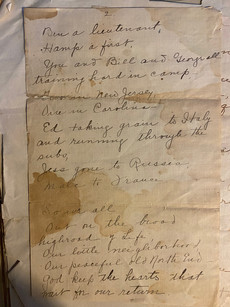 Ben a lieutenant,
Hamp a fast,
You and Bill and George all
training hard in camp,
in New Jersey,
One in Carolina
Ed taking grain to Italy
and running through the
subs,
gone to Russia
to France
all
out on the broad
highroad of Life
Our little neighborhood
Our peaceful old North End
God keep the hearts that
wait for our return